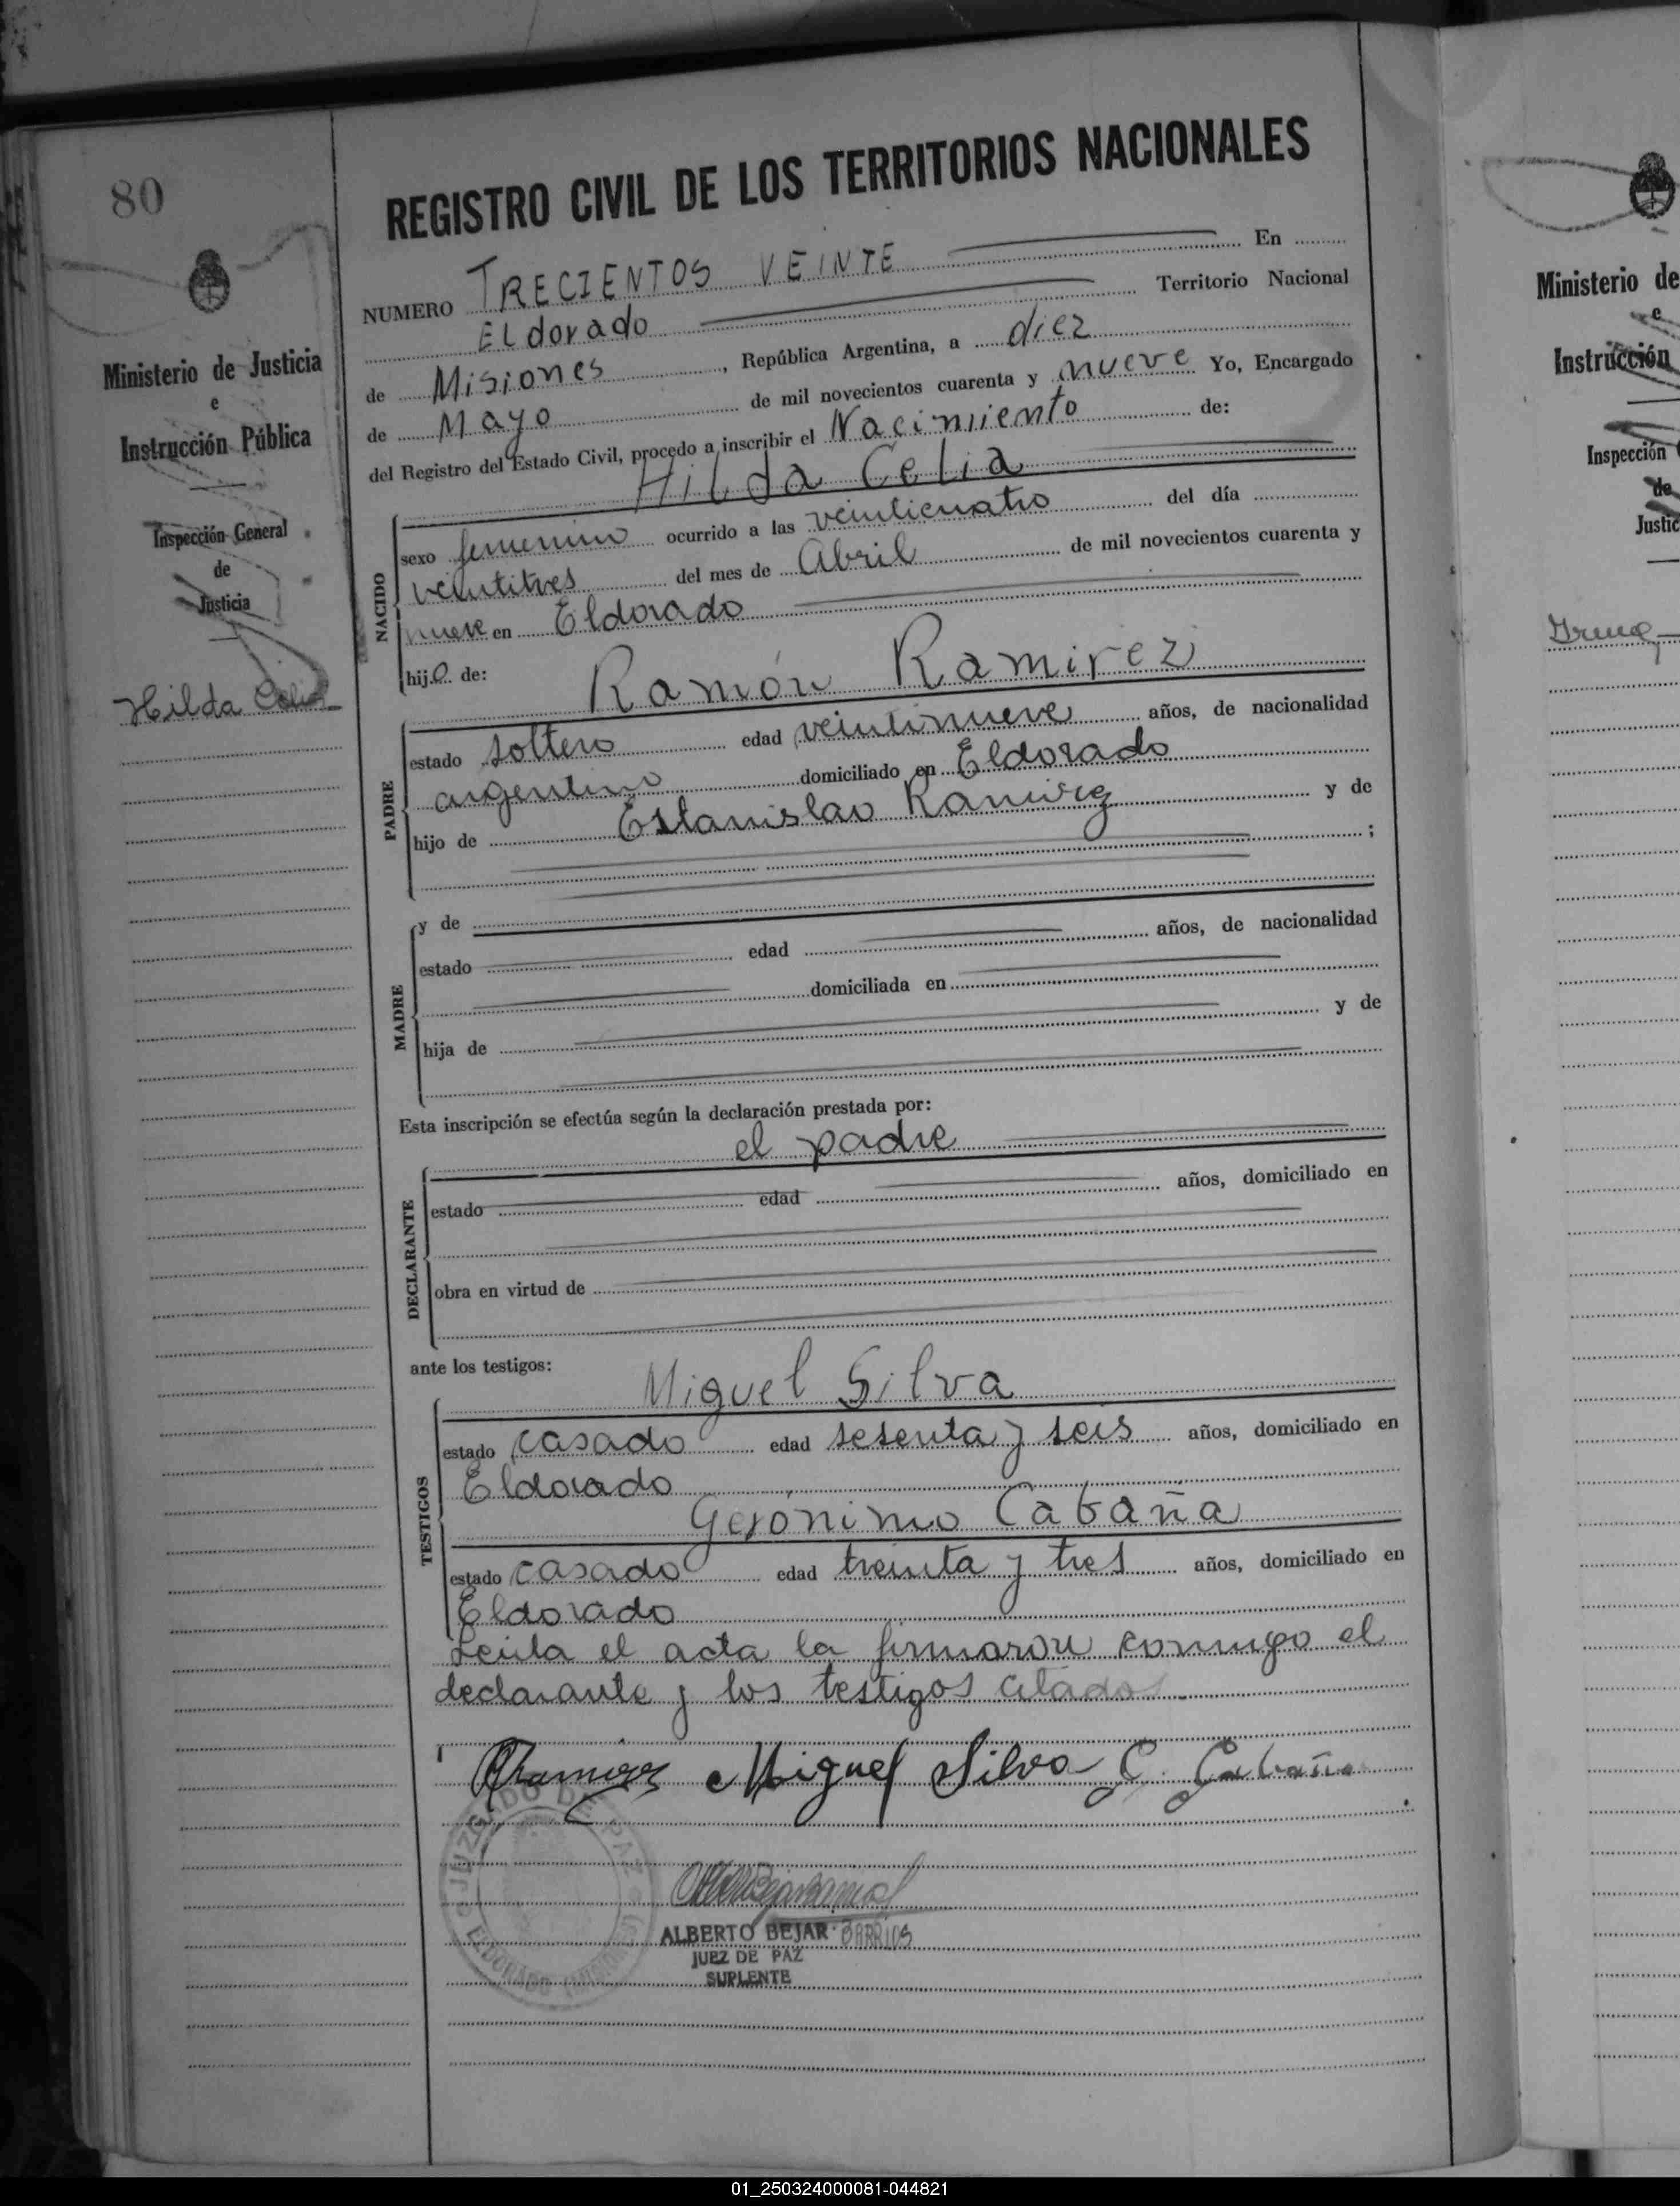 80
Ministerio de Justicia
e
Instrucción Pública
Inspección General
de
Justicia
Hilda Celia
REGISTRO CIVIL DE LOS TERRITORIOS NACIONALES
NUMERO TRECIENTOS VEINTE En
ELdorado Territorio Nacional
de Misiones, República Argentina, a diez
de Mayo de mil novecientos cuarenta y nueve Yo, Encargado
del Registro del Estado Civil, procedo a inscribir el Nacimiento de:
Hilda Celia
NACIDO
sexo femenino ocurrido a las veinticuatro del día
veintitres del mes de Abril de mil novecientos cuarenta y
nueve en Eldorado
hijo de:
Ramón Ramirez
PADRE
estado soltero edad veintinueve años, de nacionalidad
argentino domiciliado en Eldorado
hijo de Estanislao Ramirez y de
;
y de
MADRE
estado edad años, de nacionalidad
domiciliada en
hija de y de
Esta inscripción se efectúa según la declaración prestada por:
el padre
DECLARANTE
estado edad años, domiciliado en
obra en virtud de
ante los testigos:
Miguel Silva
TESTIGOS
estado casado edad sesenta y seis años, domiciliado en
Eldorado
Gerónimo Cabaña
estado casado edad treinta y tres años, domiciliado en
Eldorado
Leida el acta la firmaron conmigo el
declarante y los testigos citados.
RRamirez Miguel Silva G. Cabaña
JUZGADO DE PAZ
ELDORADO (MISIONES)
ALBERTO BEJAR BARRIOS
JUEZ DE PAZ
SUPLENTE
Ministerio de
e
Instrucción
Inspección
de
Justic
01_250324000081-044821